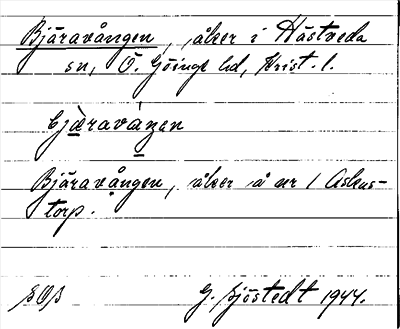 Bjäravången, åker i Hästveda
sn, Ö. Göinge hd, Krist. l.
bjæravåŋen
Bjäravången, åker å nr 1 Askas-
torp.
G. Sjöstedt 1944.